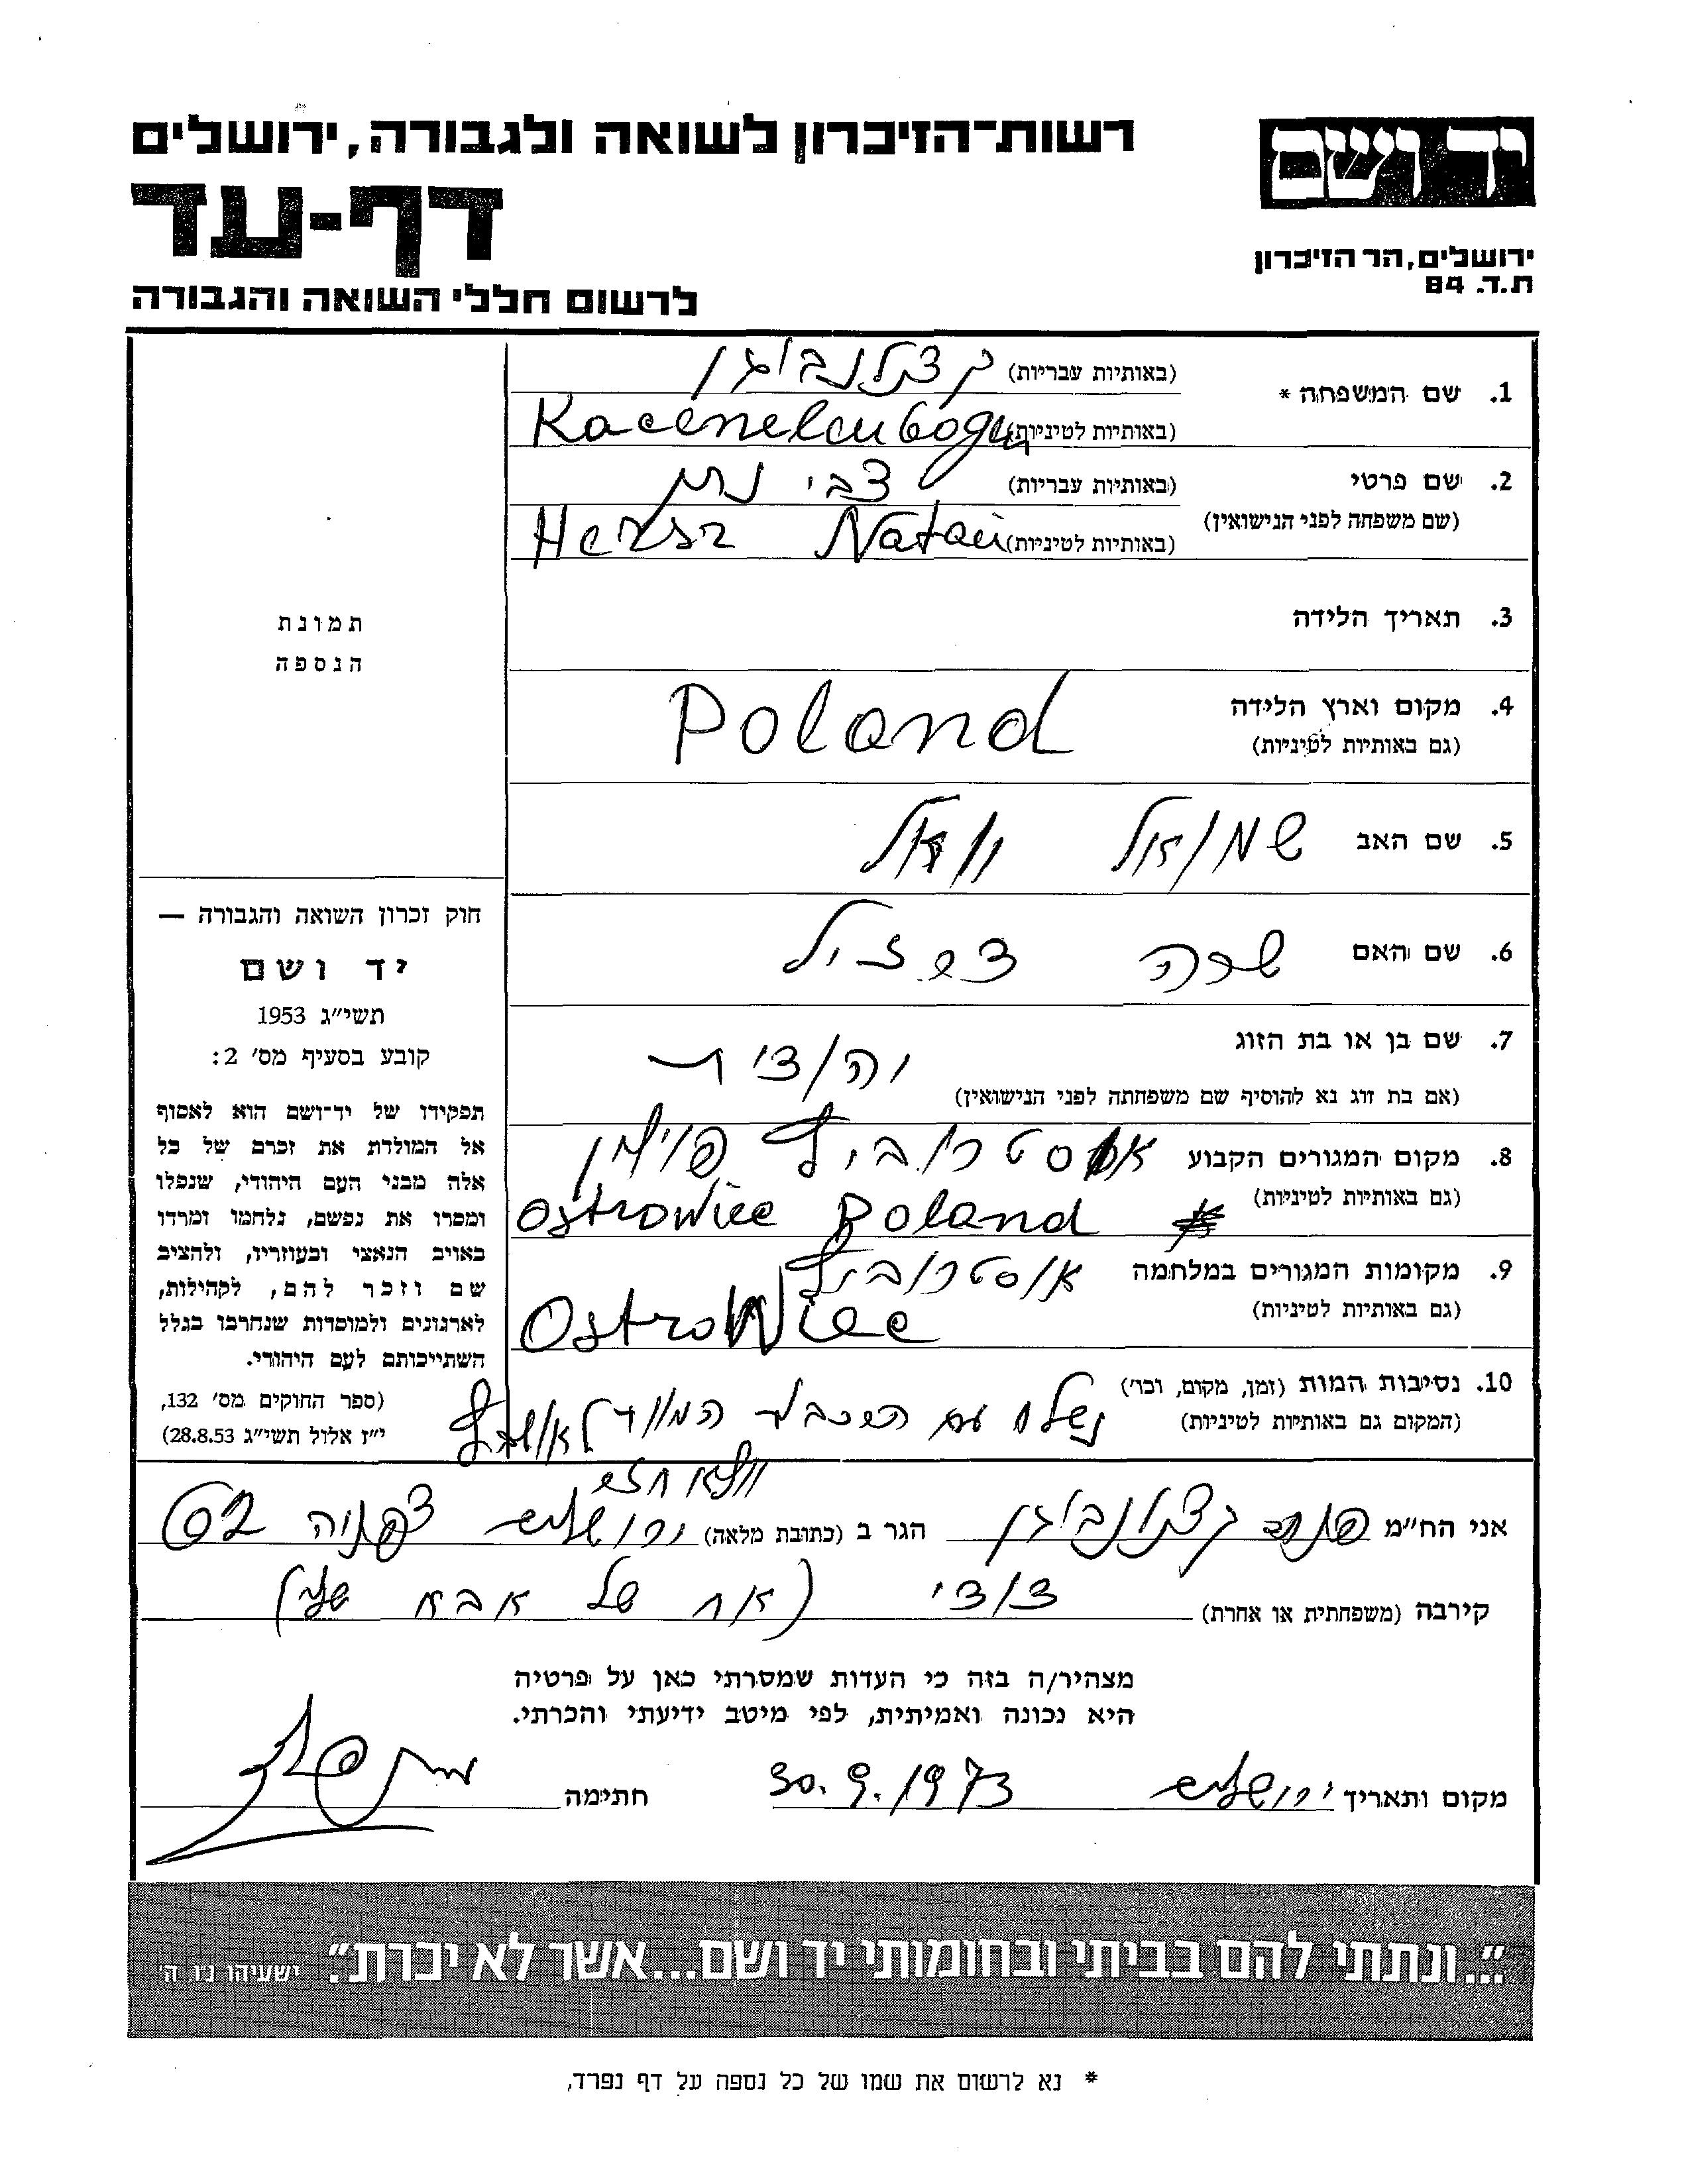 רשות־הזיכרון לשואה ולגבורה, ירושלים
יד ושם
דף-עד
ירושלים, הר הזיכרון
ת.ד. 84
לרשום חללי השואה והגבורה
1. שם המשפחה * (באותיות עבריות) קצנלנבוגן
(באותיות לטיניות) Kacenelenbogen
2. שם פרטי (באותיות עבריות) צבי נתן
(שם משפחה לפני הנישואין) (באותיות לטיניות) Hersz Natan
3. תאריך הלידה
4. מקום וארץ הלידה Poland
(גם באותיות לטיניות)
5. שם האב שמואל
6. שם האם שרה
7. שם בן או בת הזוג
(אם בת זוג נא להוסיף שם משפחתה לפני הנישואין)
8. מקום המגורים הקבוע אוסטרוביץ פולין
(גם באותיות לטיניות) Ostrowiec Poland
9. מקומות המגורים במלחמה אוסטרוביץ
(גם באותיות לטיניות) Ostrowiec
10. נסיבות המות (זמן, מקום, וכו')
(המקום גם באותיות לטיניות) נשלח עם
ולא חזר
תמונת
הנספה
חוק זכרון השואה והגבורה —
יד ושם
תשי"ג 1953
קובע בסעיף מס' 2:
תפקידו של יד־ושם הוא לאסוף
אל המולדת את זכרם של כל
אלה מבני העם היהודי, שנפלו
ומסרו את נפשם, נלחמו ומרדו
באויב הנאצי ובעוזריו, ולהציב
שם וזכר להם, לקהילות,
לארגונים ולמוסדות שנחרבו בגלל
השתייכותם לעם היהודי.
(ספר החוקים מס' 132,
י"ז אלול תשי"ג 28.8.53)
אני הח"מ קצנלנבוגן הגר ב (כתובת מלאה) ירושלים 62
קירבה (משפחתית או אחרת) דודי (אח של אבא שלי)
מצהיר/ה בזה כי העדות שמסרתי כאן על פרטיה
היא נכונה ואמיתית, לפי מיטב ידיעתי והכרתי.
מקום ותאריך ירושלים 30.9.1973 חתימה
"...ונתתי להם בביתי ובחומותי יד ושם...אשר לא יכרת". ישעיהו נ"ו, ה'
* נא לרשום את שמו של כל נספה על דף נפרד,